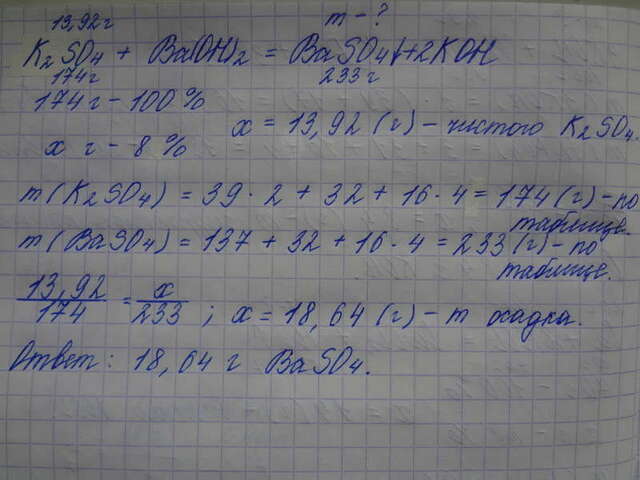 13,92 г m - ?
K₂SO₄ + Ba(OH)₂ = BaSO₄↓+2KOH
174 г 233 г
174 г - 100 %
x = 13,92 (г) - чистого K₂SO₄.
x г - 8 %
m(K₂SO₄) = 39 · 2 + 32 + 16 · 4 = 174 (г) - по
таблице.
m(BaSO₄) = 137 + 32 + 16 · 4 = 233 (г) - по
таблице.
13,92/174 = x/233 ; x = 18,64 (г) - m осадка.
Ответ: 18,64 г BaSO₄.